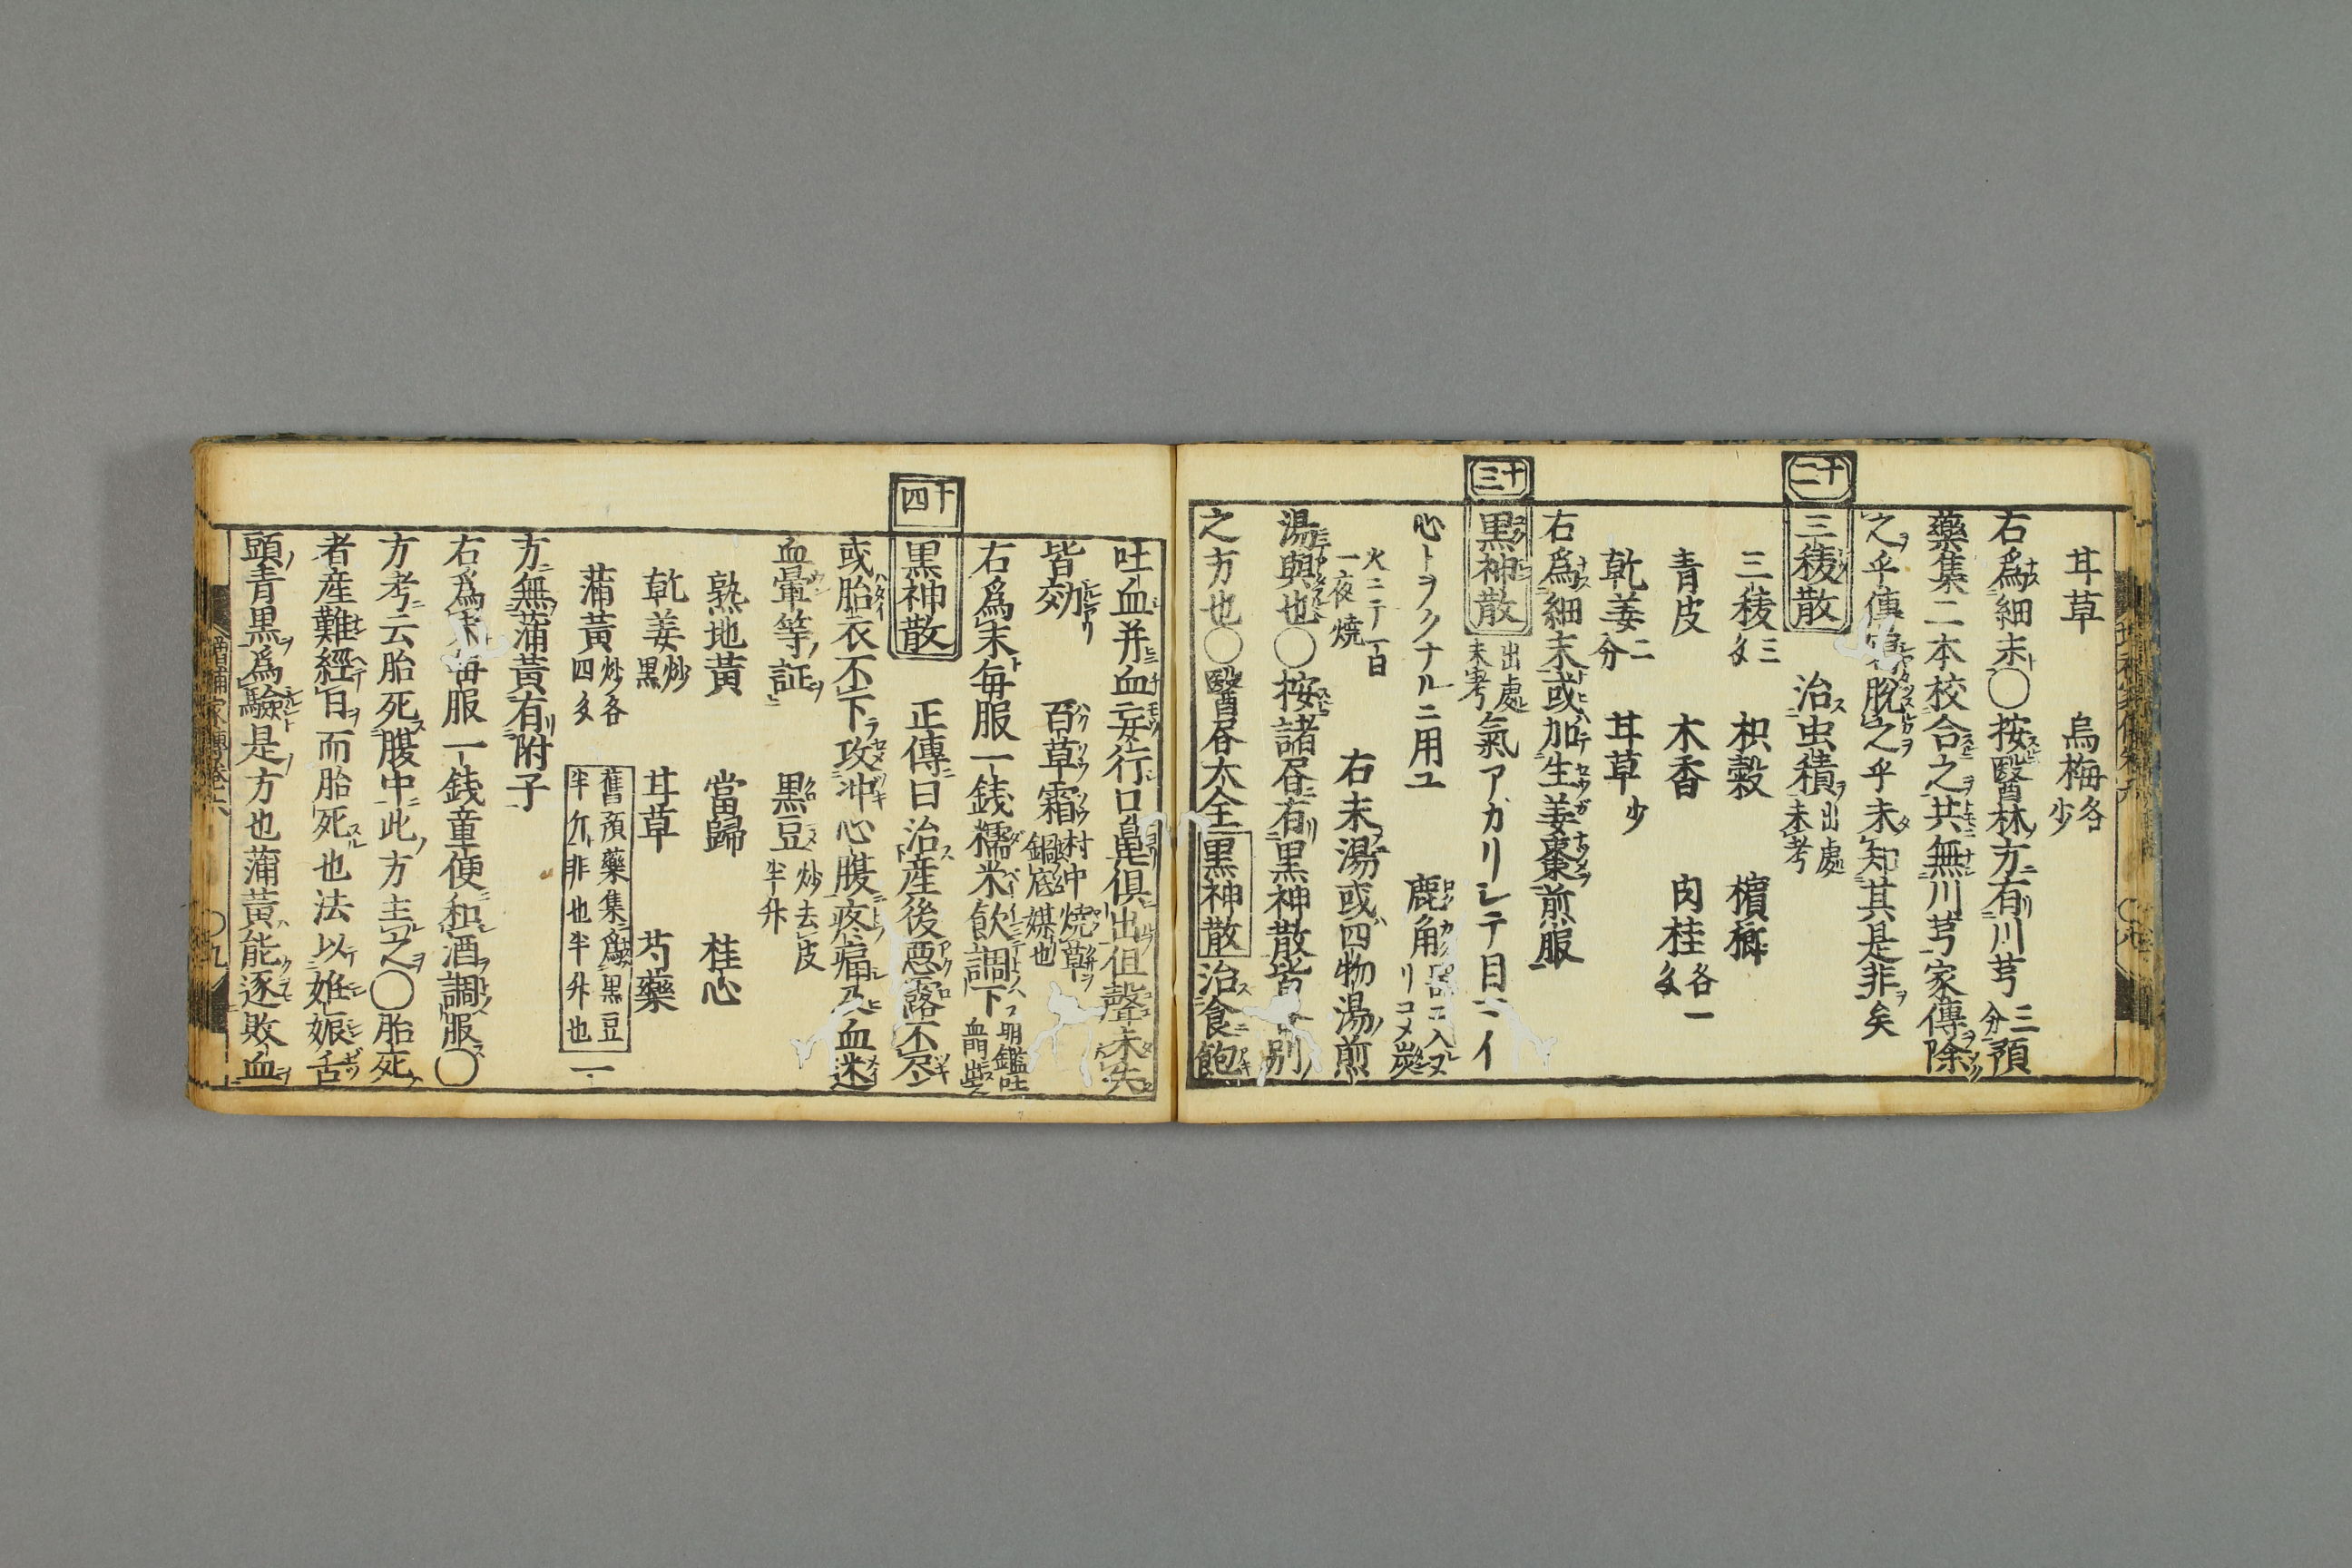 甘草　烏梅各少
右爲細末〇按醫林方有川芎三分預
藥集二本校合之共無川芎家傳除
之乎傳寫脫之乎未知其是非矣
十二
三稜散　治虫積出處未考
三稜三多　枳穀　檳榔
青皮　木香　肉桂各一多
乾姜二分　甘草少
右爲細末或加生姜棗煎服
十三
黒神散出處未考氣アガリシテ目マイ
心トヲクナルニ用ユ　鹿角
リコメ炭
火ニテ一百一夜燒　右末湯或四物湯煎
湯與也〇按諸昏有黒神散皆別
之方也〇醫昏大全黒神散治食飽
吐血并血妄行口鼻俱出但聲未失
皆効　百草霜村中燒草鍋底煤也
右爲末毎服一銭糯米飲調下明鑑吐血門
十四
黒神散　正傳曰治産後惡露不尽
或胎衣不下攻冲心腹疼痛及血迷
血暈等証　黒豆炒去皮半升
熟地黃　當歸　桂心
乾姜炒黒　甘草　芍藥
蒲黃炒各四多　舊預藥集爲黒豆半斤非也半升也　一
方無蒲黃有附子
右爲末毎服一銭童便和酒調服〇
方考云胎死腹中此方主之〇胎死
者産難經日而胎死也法以姙娠舌
頭青黒爲驗是方也蒲黃能逐敗血
増補家傳卷六
〇九